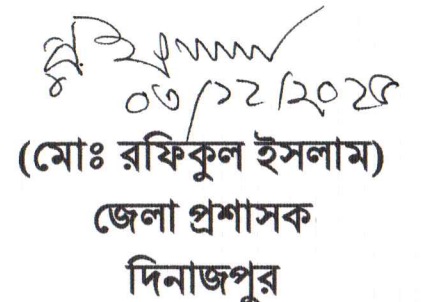 ০৩/১২/২০২৫
(মোঃ রফিকুল ইসলাম)
জেলা প্রশাসক
দিনাজপুর